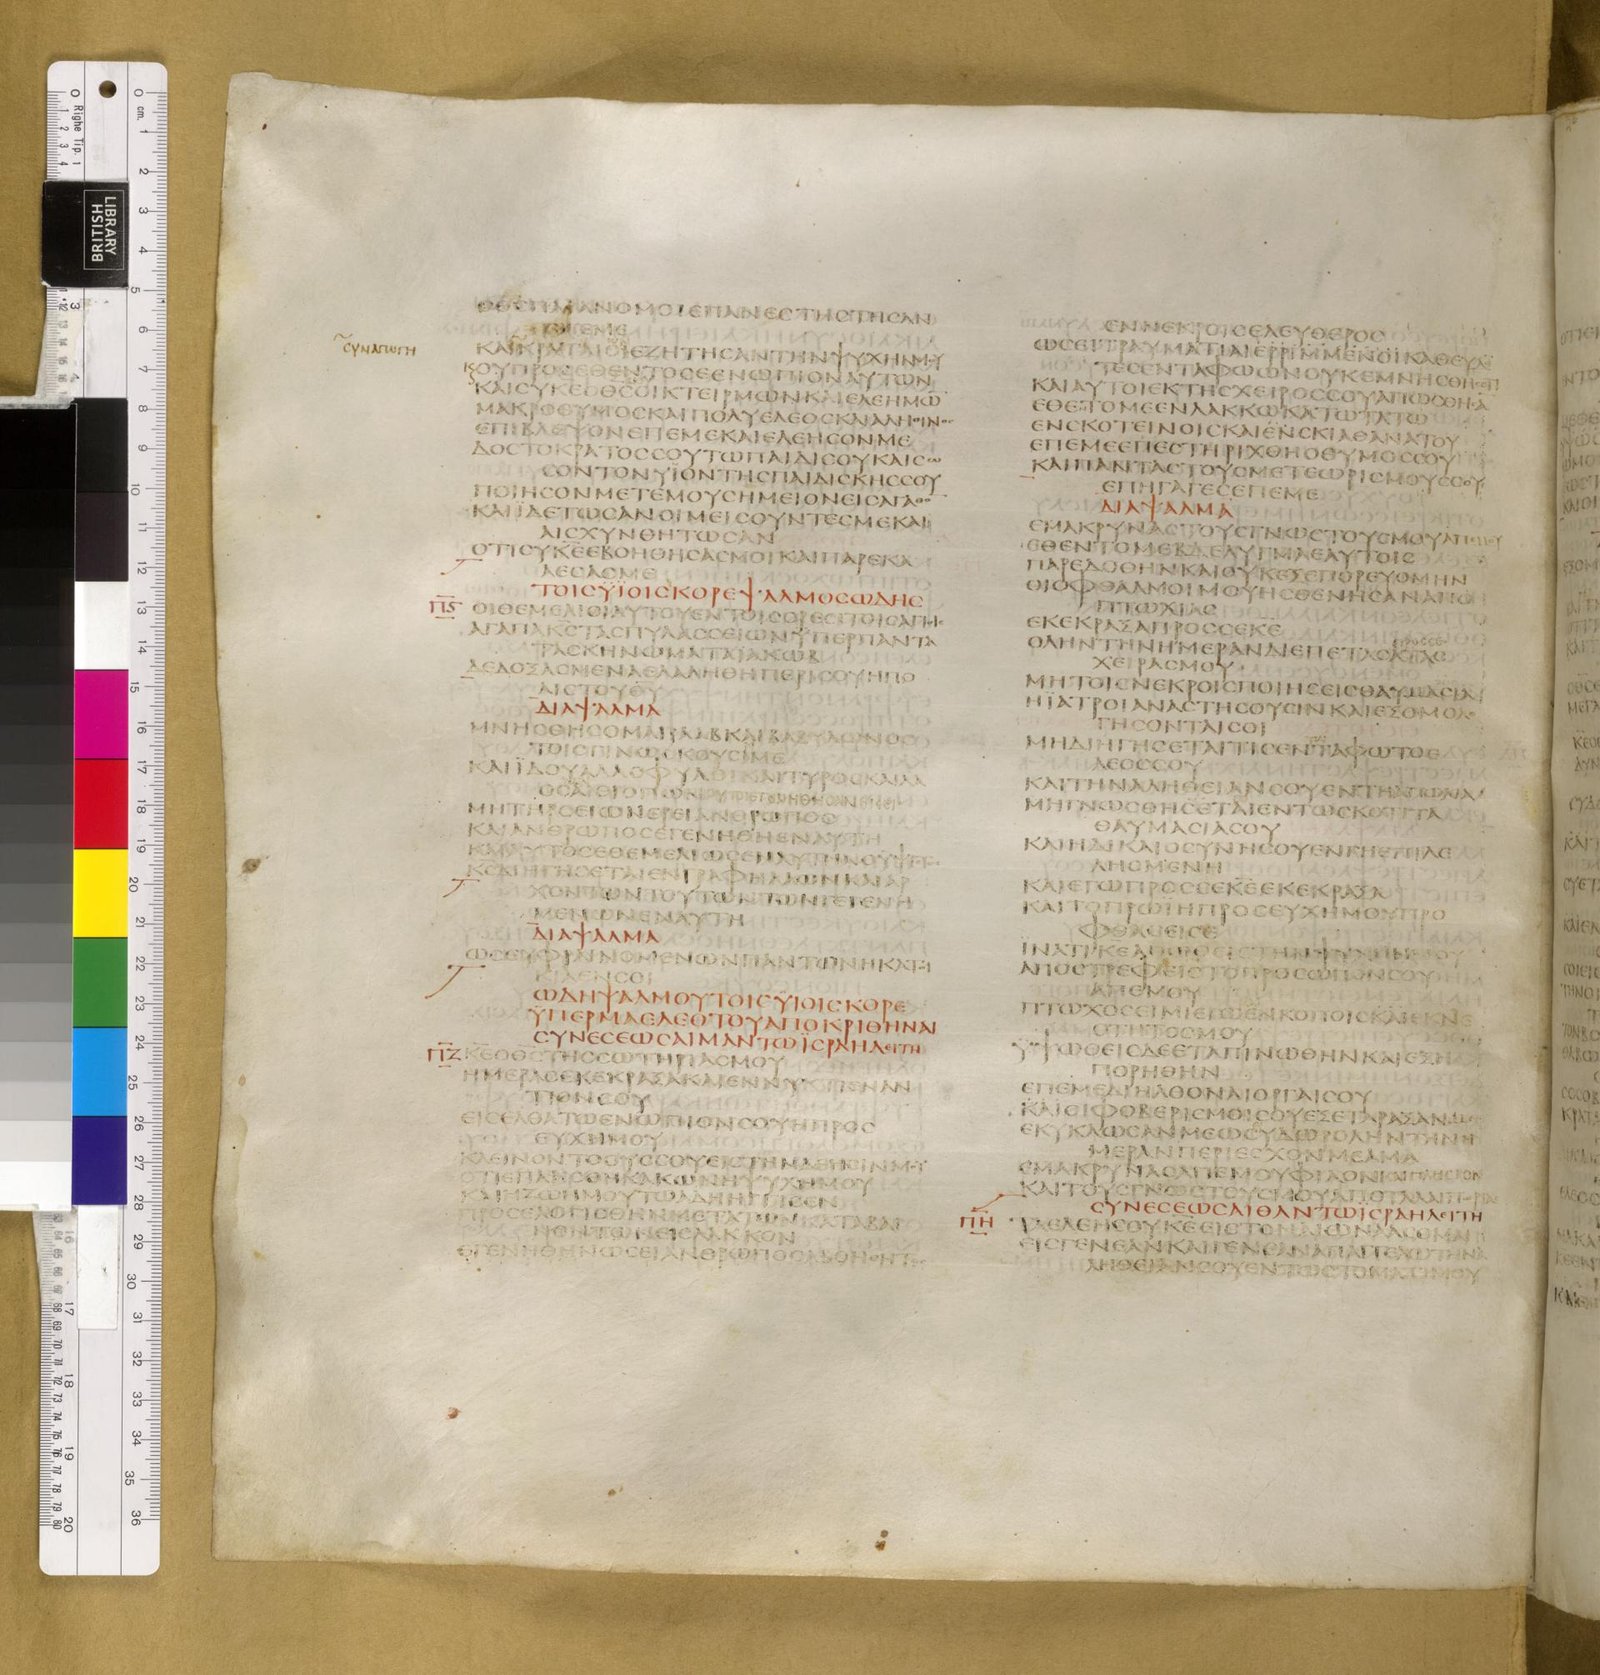 ΘΕΟΙΠΑΡΑΝΟΜΟΙΕΠΑΝΕCΤΗCΑΝ
ΕΠΕΜΕ
CΥΝΑΓΩΓΗ
ΚΑΙΚΡΑΤΑΙΟΙΕΖΗΤΗCΑΝΤΗΝΨΥΧΗΝΜΟΥ
ΟΥΠΡΟΕΘΕΝΤΟCΕΕΝΩΠΙΟΝΑΥΤΩΝ
ΚΑΙCΥΚΕΟΘCΟΙΚΤΕΙΡΜΩΝΚΑΙΕΛΕΗΜΩ
ΜΑΚΡΟΘΥΜΟCΚΑΙΠΟΛΥΕΛΕΟCΚΑΙΑΛΗΘΙΝΟC
ΕΠΙΒΛΕΨΟΝΕΠΕΜΕΚΑΙΕΛΕΗCΟΝΜΕ
ΔΟCΤΟΚΡΑΤΟCCΟΥΤΩΠΑΙΔΙCΟΥΚΑΙCΩ
CΟΝΤΟΝΥΙΟΝΤΗCΠΑΙΔΙCΚΗCCΟΥ
ΠΟΙΗCΟΝΜΕΤΕΜΟΥCΗΜΕΙΟΝΕΙCΑΓΑΘΟ
ΚΑΙΙΔΕΤΩCΑΝΟΙΜΕΙCΟΥΝΤΕCΜΕΚΑΙ
ΑΙCΧΥΝΘΗΤΩCΑΝ
ΟΤΙCΥΚΕΕΒΟΗΘΗCΑCΜΟΙΚΑΙΠΑΡΕΚΑ
ΛΕCΑCΜΕ
ΤΟΙCΥΙΟΙCΚΟΡΕΨΑΛΜΟCΩΔΗC
ΠϚ
ΟΙΘΕΜΕΛΙΟΙΑΥΤΟΥΕΝΤΟΙCΟΡΕCΙΤΟΙCΑΓΙΟΙC
ΑΓΑΠΑΚCΤΑCΠΥΛΑCCΕΙΩΝΥΠΕΡΠΑΝΤΑ
ΤΑCΚΗΝΩΜΑΤΑΙΑΚΩΒ
ΔΕΔΟΞΑCΜΕΝΑΕΛΑΛΗΘΗΠΕΡΙCΟΥΗΠΟ
ΛΙCΤΟΥΘΥ
ΔΙΑΨΑΛΜΑ
ΜΝΗCΘΗCΟΜΑΙΡΑΑΒΚΑΙΒΑΒΥΛΩΝΟC
ΤΟΙCΓΙΝΩCΚΟΥCΙΜΕ
ΚΑΙΙΔΟΥΑΛΛΟΦΥΛΟΙΚΑΙΤΥΡΟCΚΑΙΛΑ
ΟCΑΙΘΙΟΠΩΝΟΥΤΟΙΕΓΕΝΗΘΗCΑΝΕΚΕΙ
ΜΗΤΗΡCΕΙΩΝΕΡΕΙΑΝΘΡΩΠΟC
ΚΑΙΑΝΘΡΩΠΟCΕΓΕΝΗΘΗΕΝΑΥΤΗ
ΚΑΙΑΥΤΟCΕΘΕΜΕΛΙΩCΕΝΑΥΤΗΝΟΥΨΙCΤΟC
ΚCΔΙΗΓΗCΕΤΑΙΕΝΓΡΑΦΗΛΑΩΝΚΑΙΑΡ
ΧΟΝΤΩΝΤΟΥΤΩΝΤΩΝΓΕΓΕΝΗ
ΜΕΝΩΝΕΝΑΥΤΗ
ΔΙΑΨΑΛΜΑ
ΩCΕΥΦΡΑΙΝΟΜΕΝΩΝΠΑΝΤΩΝΗΚΑΤΟΙ
ΚΙΑΕΝCΟΙ
ΩΔΗΨΑΛΜΟΥΤΟΙCΥΙΟΙCΚΟΡΕ
ΥΠΕΡΜΑΕΛΕΘΤΟΥΑΠΟΚΡΙΘΗΝΑΙ
CΥΝΕCΕΩCΑΙΜΑΝΤΩΙCΡΑΗΛΕΙΤΗ
ΠΖ
ΚΕΟΘCΤΗCCΩΤΗΡΙΑCΜΟΥ
ΗΜΕΡΑCΕΚΕΚΡΑΞΑΚΑΙΕΝΝΥΚΤΙΕΝΑΝ
ΤΙΟΝCΟΥ
ΕΙCΕΛΘΑΤΩΕΝΩΠΙΟΝCΟΥΗΠΡΟC
ΕΥΧΗΜΟΥ
ΚΛΕΙΝΟΝΤΟΟΥCCΟΥΕΙCΤΗΝΔΕΗCΙΝΜΟΥ
ΟΤΙΕΠΛΗCΘΗΚΑΚΩΝΗΨΥΧΗΜΟΥ
ΚΑΙΗΖΩΗΜΟΥΤΩΑΔΗΗΓΓΙCΕΝ
ΠΡΟCΕΛΟΓΙCΘΗΝΜΕΤΑΤΩΝΚΑΤΑΒΑΙ
ΝΟΝΤΩΝΕΙCΛΑΚΚΟΝ
ΕΓΕΝΗΘΗΝΩCΕΙΑΝΘΡΩΠΟCΑΒΟΗΘΗΤΟC
ΕΝΝΕΚΡΟΙCΕΛΕΥΘΕΡΟC
ΩCΕΙΤΡΑΥΜΑΤΙΑΙΕΡΡΙΜΜΕΝΟΙΚΑΘΕΥΔΟ
ΤΕCΕΝΤΑΦΩΩΝΟΥΚΕΜΝΗCΘΗCΕΤΙ
ΚΑΙΑΥΤΟΙΕΚΤΗCΧΕΙΡΟCCΟΥΑΠΩCΘΗCΑ
ΕΘΕΤΟΜΕΕΝΛΑΚΚΩΚΑΤΩΤΑΤΩ
ΕΝCΚΟΤΕΙΝΟΙCΚΑΙΕΝCΚΙΑΘΑΝΑΤΟΥ
ΕΠΕΜΕΕΠΕCΤΗΡΙΧΘΗΟΘΥΜΟCCΟΥ
ΚΑΙΠΑΝΤΑCΤΟΥCΜΕΤΕΩΡΙCΜΟΥCCΟΥ
ΕΠΗΓΑΓΕCΕΠΕΜΕ
ΔΙΑΨΑΛΜΑ
ΕΜΑΚΡΥΝΑCΤΟΥCΓΝΩCΤΟΥCΜΟΥΑΠΕΜΟΥ
ΕΘΕΝΤΟΜΕΒΔΕΛΥΓΜΑΕΑΥΤΟΙC
ΠΑΡΕΔΟΘΗΝΚΑΙΟΥΚΕΞΕΠΟΡΕΥΟΜΗΝ
ΟΙΟΦΘΑΛΜΟΙΜΟΥΗCΘΕΝΗCΑΝΑΠΟ
ΠΤΩΧΙΑC
ΕΚΕΚΡΑΞΑΠΡΟCCΕΚΕ
ΟΛΗΝΤΗΝΗΜΕΡΑΝΔΙΕΠΕΤΑCΑΤΑC
ΠΡΟCCΕ
ΧΕΙΡΑCΜΟΥ
ΜΗΤΟΙCΝΕΚΡΟΙCΠΟΙΗCΕΙCΘΑΥΜΑCΙΑ
ΗΙΑΤΡΟΙΑΝΑCΤΗCΟΥCΙΝΚΑΙΕΞΟΜΟΛΟ
ΓΗCΟΝΤΑΙCΟΙ
ΜΗΔΙΗΓΗCΕΤΑΙΤΙCΕΝΤΑΦΩΤΟΕ
ΛΕΟCCΟΥ
ΚΑΙΤΗΝΑΛΗΘΕΙΑΝCΟΥΕΝΤΗΑΠΩΛΙΑ
ΜΗΓΝΩCΘΗCΕΤΑΙΕΝΤΩCΚΟΤΙΤΑ
ΘΑΥΜΑCΙΑCΟΥ
ΚΑΙΗΔΙΚΑΙΟCΥΝΗCΟΥΕΝΓΗΕΠΙΛΕ
ΛΗCΜΕΝΗ
ΚΑΙΕΓΩΠΡΟCCΕΚΕΕΚΕΚΡΑΞΑ
ΚΑΙΤΟΠΡΩΙΗΠΡΟCΕΥΧΗΜΟΥΠΡΟ
ΦΘΑCΕΙCΕ
ΙΝΑΤΙΚΕΑΠΩΘΕΙCΤΗΝΨΥΧΗΝΜΟΥ
ΑΠΟCΤΡΕΦΕΙCΤΟΠΡΟCΩΠΟΝCΟΥ
ΑΠΕΜΟΥ
ΠΤΩΧΟCΕΙΜΙΕΓΩΕΝΚΟΠΟΙCΚΑΙΕΚΝΕ
ΟΤΗΤΟCΜΟΥ
ΥΨΩΘΕΙCΔΕΕΤΑΠΙΝΩΘΗΝΚΑΙΕΞΗ
ΠΟΡΗΘΗΝ
ΕΠΕΜΕΔΙΗΛΘΟΝΑΙΟΡΓΑΙCΟΥ
ΚΑΙΟΙΦΟΒΕΡΙCΜΟΙCΟΥΕΞΕΤΑΡΑΞΑΝΜΕ
ΕΚΥΚΛΩCΑΝΜΕΩCΥΔΩΡΟΛΗΝΤΗΝΗ
ΜΕΡΑΝΠΕΡΙΕCΧΟΝΜΕΑΜΑ
ΕΜΑΚΡΥΝΑCΑΠΕΜΟΥΦΙΛΟΝΚΑΙΠΛΗCΙΟΝ
ΚΑΙΤΟΥCΓΝΩCΤΟΥCΜΟΥΑΠΟΤΑΛΑΙΠΩΡΙΑC
CΥΝΕCΕΩCΑΙΘΑΝΤΩΙCΡΑΗΛΕΙΤΗ
ΠΗ
ΤΑΕΛΕΗCΟΥΚΕΕΙCΤΟΝΑΙΩΝΑΑCΟΜΑΙ
ΕΙCΓΕΝΕΑΝΚΑΙΓΕΝΕΑΝΑΠΑΓΓΕΛΩΤΗΝΑ
ΛΗΘΕΙΑΝCΟΥΕΝΤΩCΤΟΜΑΤΙΜΟΥ
BRITISH
LIBRARY